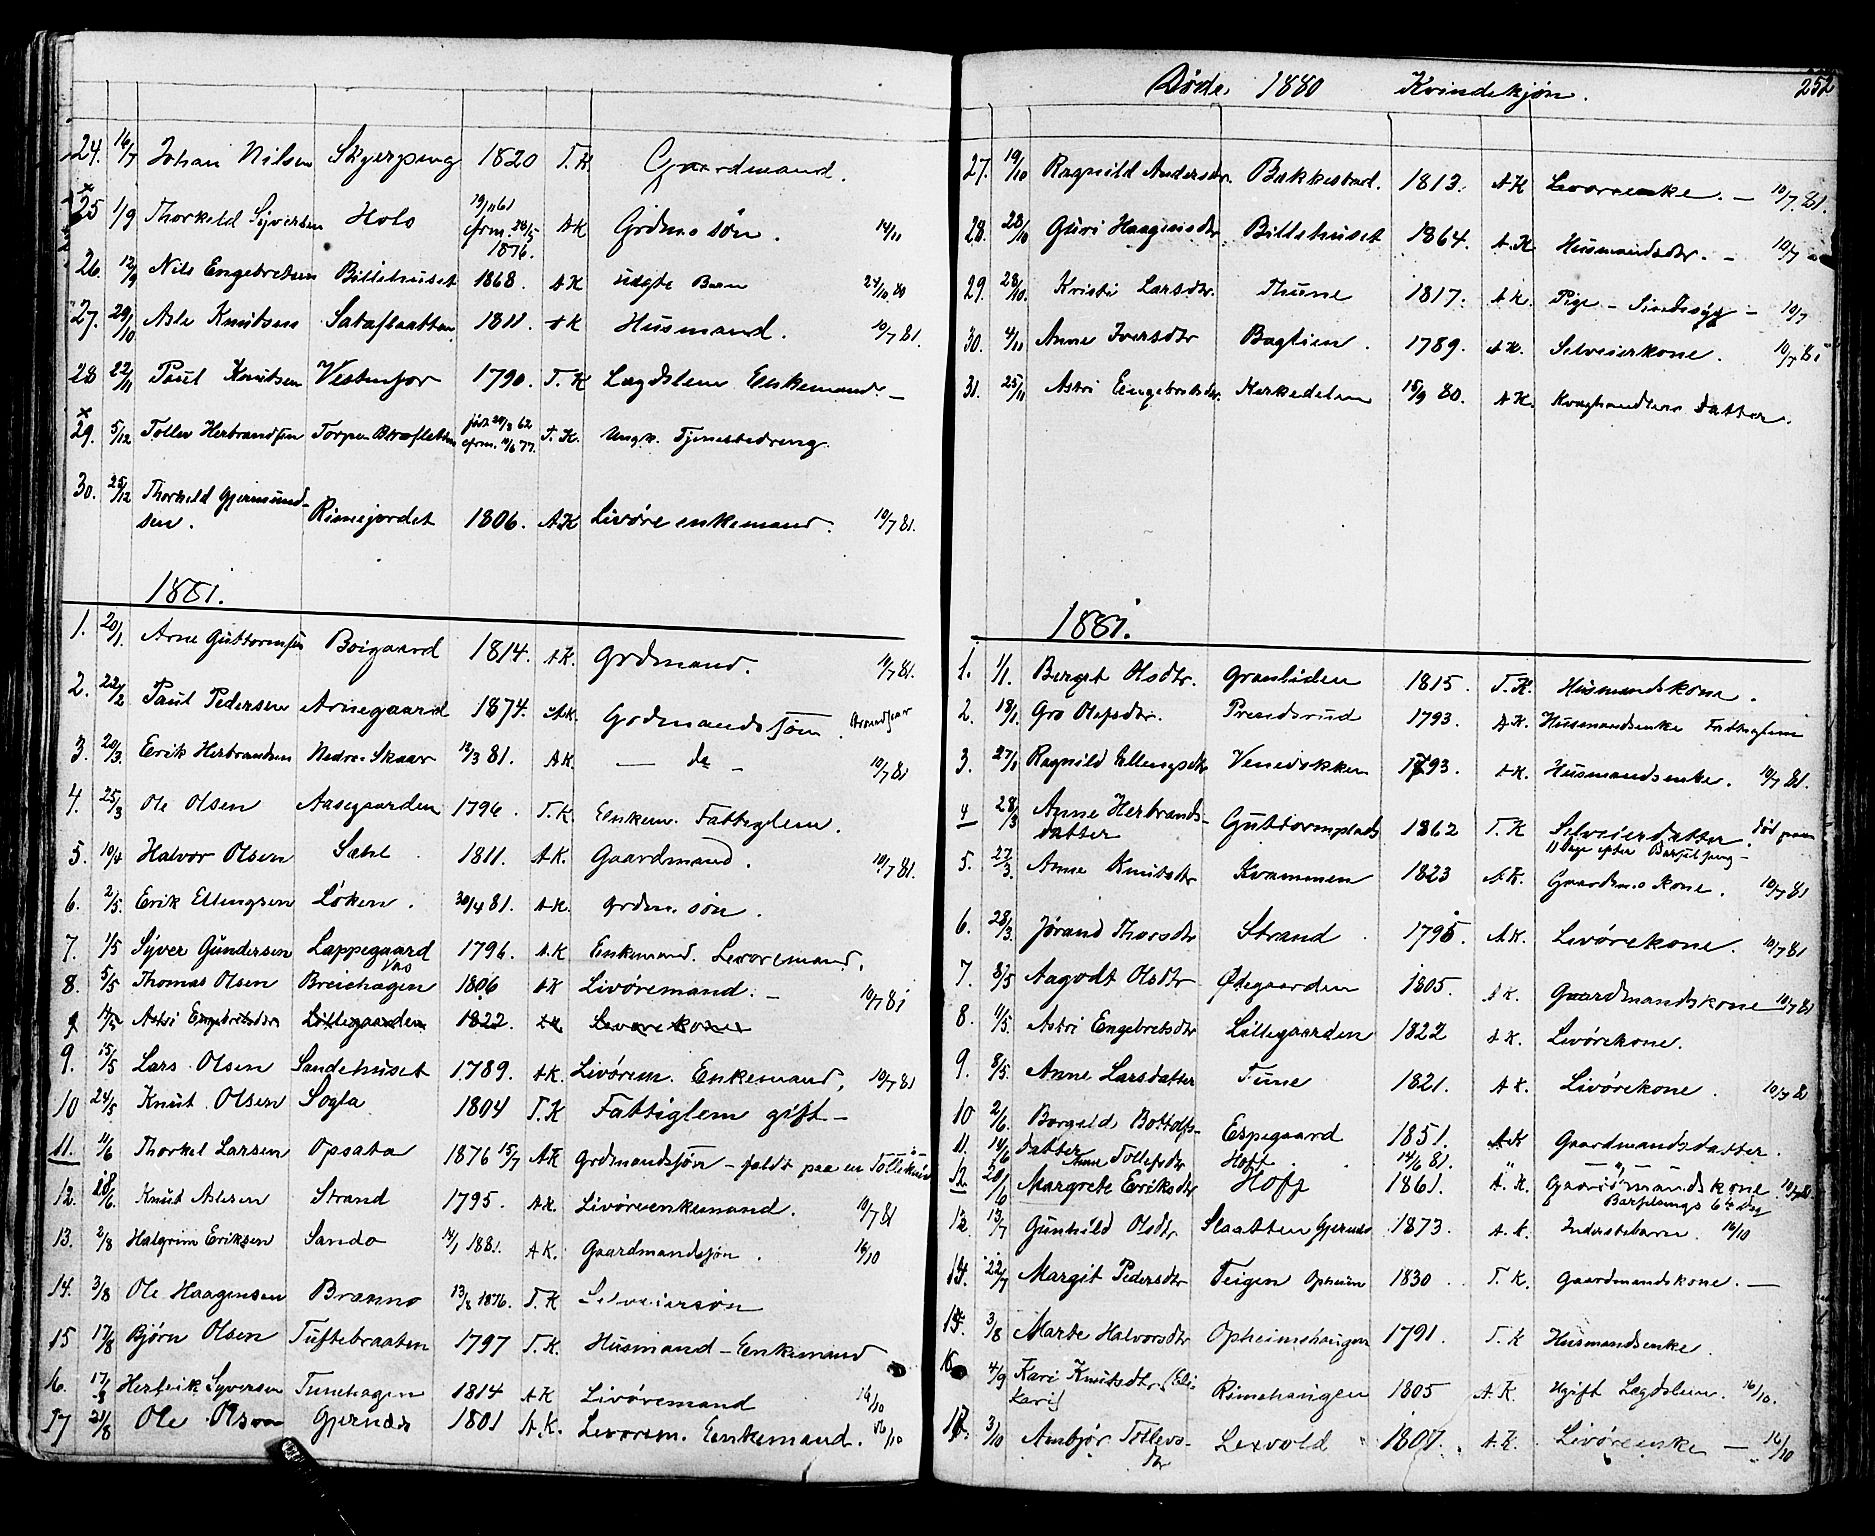 24. 16/7 Johan Nilsen Skjerping 1820 T. K. Gaardmand.
x 19/11 61
25 1/9 Thorkeld Syversen Holo Cfrm. 1876. AK Grdms søn. 14/11
26. 12/9 Nils Engebretsen Billehuset 1868. AK uægte Barn 24/10 80
27. 29/10 Asle Knutsen Sataslaatten 1811. AK Husmand. 10/7 81.
28 22/11 Paul Knutsen Vestenfor 1790. T. K Lægdslem Enkemand. –
x
29. 5/12 Tollev Herbrandsen Torpe født 62 Cfrm. 77. T. K. Ungk. Tjenestedreng.
30. 25/12 Thorkeld Gjermund-
sen. Rimejordet 1806. AK Livøre enkemand. 10/7 81.
1881.
1. 20/1. Arne Guttormsen Boigaard 1814. AK. Grdmand. 10/7 81.
2. 22/2 Paul Pedersen Arnegaard 1874. AK. Grdmands søn.
3. 20/3. Erik Herbrandsen Nedre-Skaar 12/3 81. AK. – do – 10/7 81
4. 25/3 Ole Olsen Aasegaarden 1796. T. K. Enkem. Fattiglem.
5. 10/4 Halvor Olsen Sæhl 1811. A.K. Gaardmand. 10/7 81.
6. 2/5. Erik Ellingsen Løken. 30/4 81. A.K. grdm. søn.
7. 1/5 Syver Gundersen Lappegaard 1796. A.K Enkemand. Levøremand.
8. 5/5 Thomas Olsen Breiehagen 1806 AK Livøremand. – 10/7 81
9 14/5 Astri Engebretsdtr Lillegaarden 1822. AK Levørekone
9. 15/5 Lars Olsen Sandehuset 1789. AK. Livørem. Enkemand, 10/7 81
10 24/5 Knut Olsen Sogla 1804 T.K Fattiglem gift –
11. 11/6 Thorkel Larsen Opsata 1876 15/7 AK Grdmandsøn – faldt paa en Tollekniv
12. 28/6. Knut Aslesen Strand 1795. AK. Livøreenkemand. 10/7 81
13. 2/8 Halgrim Eriksen Sando 14/1 1881. A.K. Gaardmandsøn. 16/10
14. 3/8 Ole Haagensen Brænno 13/8 1876. T. K Selveiersøn
15 17/8 Bjørn Olsen Tuftebraaten 1797 T.K. Husmand – Enkemand
16. 17/8 Herbrik Syversen Tunehagen 1814 A.K Livøremand 16/10
17 21/8 Ole Olsen Gjernæs 1801 A.K. Levorem. Enkemand. 16/10
Døde. 1880 Kvindekjøn. 252
27. 19/10 Ragnild Andersdtr. Bakkestad. 1813. AK Levøreenke. – 10/7. 81.
28. 28/10 Guri Haagensdtr Billehuset 1864. A.K Husmandsdtr. – 10/7
29. 28/10. Kristi Larsdtr. Thune 1817. AK. Pige – Sindssyg – 10/7
30. 4/11 Anne Iversdtr Baglien. 1789. AK. Selveierkone. 10/7 81
31. 25/11 Astri Engebretsdtr. Kirkedelen 15/9 80. A.K. Kvæghandlers datter.
1881.
1. 1/1. Berget Olsdtr. Granliden 1815. T.K. Husmandskone.
2. 18/1. Gro Olefsdtr. Prendsrud 1793. AK. Husmandsenke Fattiglem
3. 27/1 Ragnild Ellingsdtr 1793. AK. Husmandsenke. 10/7 81.
4 28/3 Anne Herbrands-
datter Guttormsplads 1862 T.K Selveierdatter. død paa
11 Dage efter Barselseng –
5. 27/3. Anne Knutsdtr Kvammen 1823 A.K. Gaardms Kone. 10/7 81
6. 28/3. Jørand Thorsdtr Strand. 1795. A.K. Livørekone. 10/7 81
7. 8/5 Aagodt Olsdtr Ødegaarden 1805. AK. Gaardmandskone 10/7 81
8. 11/5. Astri Engebretsdtr Lillegaarden 1822 AK. Livørekone.
9. 8/5. Anne Larsdatter Tune 1821. AK. Livørekone. 10/7 81
10 2/6. Borgild Bottolfs-
datter Espegaard 1851. AK Gaardmandsdatter.
11. 14/6 Anne Tollefsdtr Hoff. 14/6 81. " – " –
12. 20/6 Margrete Eriksdtr Hoff 1861. A. K. Gaardmandskone. 10/7 81.
Barselsengs 6te Dag
12. 13/7 Gunhild Olsdtr Slaatten Gjernæs 1873. A.K. Inderstebarn. 16/10
14. 22/7 Margit Pedersdtr Teigen Opheim 1830. T. K. Gaardmandskone. –
15. 3/8 Marte Halvorsdtr Opheimshaugen 1791. T. K Husmandsenke.
16 4/9 Kari Knutsdtr (Eli
Kari) Rimehaugen 1805 A.K. Ugift Lægdslem. 16/10.
17. 3/10 Ambjør Tollevs-
dtr Lexvold 1807. A.K. Livøreenke – 16/10